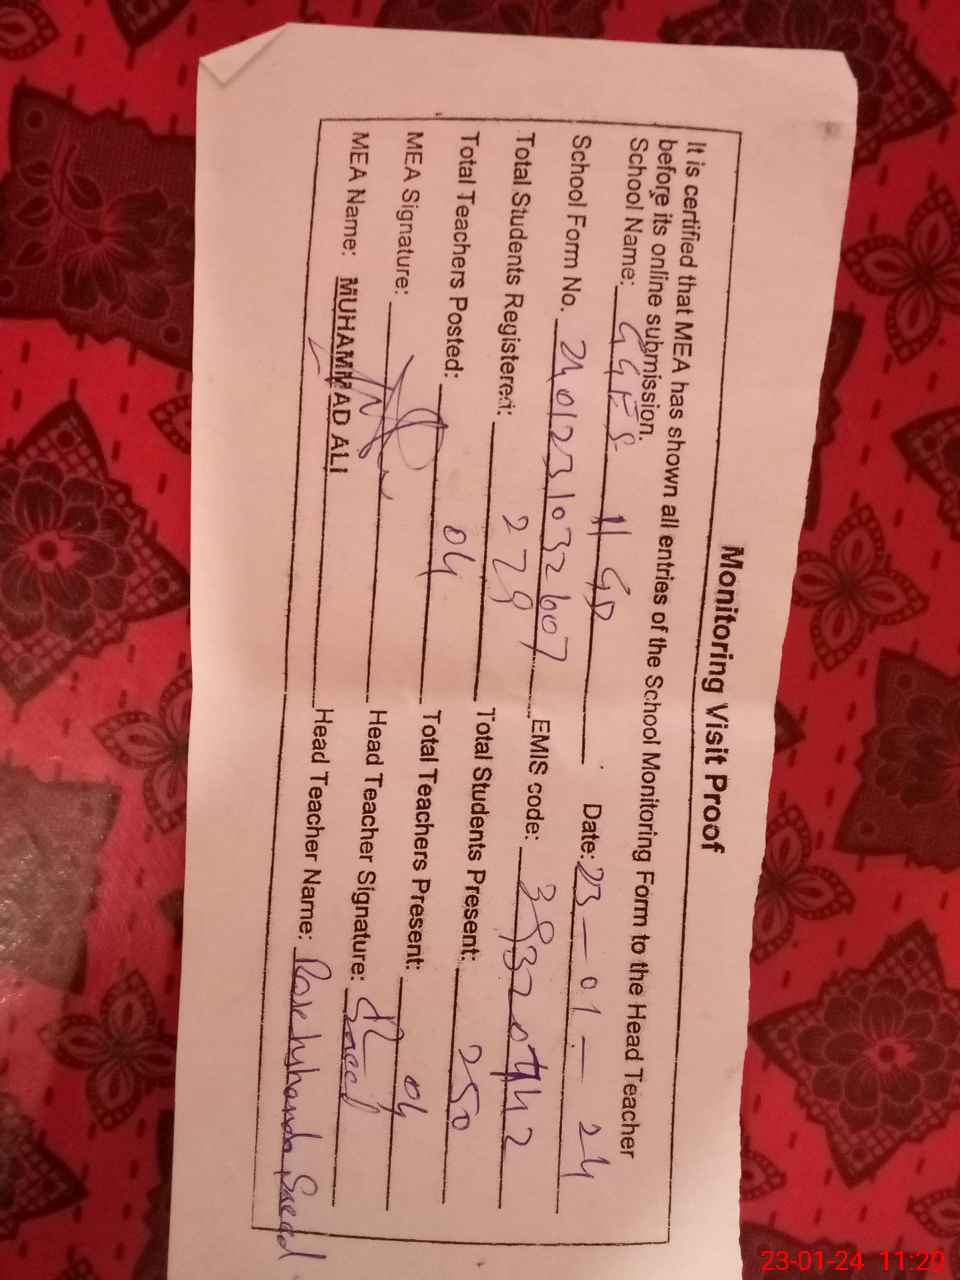 Monitoring Visit Proof
It is certified that MEA has shown all entries of the School Monitoring Form to the Head Teacher
before its online submission.
School Name: GGES 11 GD Date: 23-01-24
School Form No. 2401231032607 EMIS code: 39320442
Total Students Registered: 279 Total Students Present: 250
Total Teachers Posted: 04 Total Teachers Present: 04
MEA Signature: Head Teacher Signature: R Saeed
MEA Name: MUHAMMAD ALI Head Teacher Name: Saeed
23-01-24 11:20